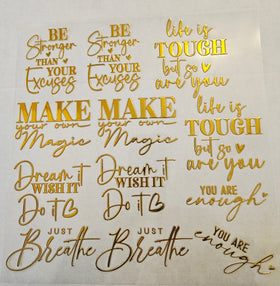 BE
Stronger
THAN
YOUR
Excuses
BE
Stronger
THAN
YOUR
Excuses
life is
TOUGH
but so
are you
MAKE
your own
Magic
MAKE
your own
Magic
life is
TOUGH
but so
are you
Dream it
WISH IT
Do it
Dream it
WISH IT
Do it
YOU ARE
enough
JUST
Breathe
JUST
Breathe
YOU ARE
enough